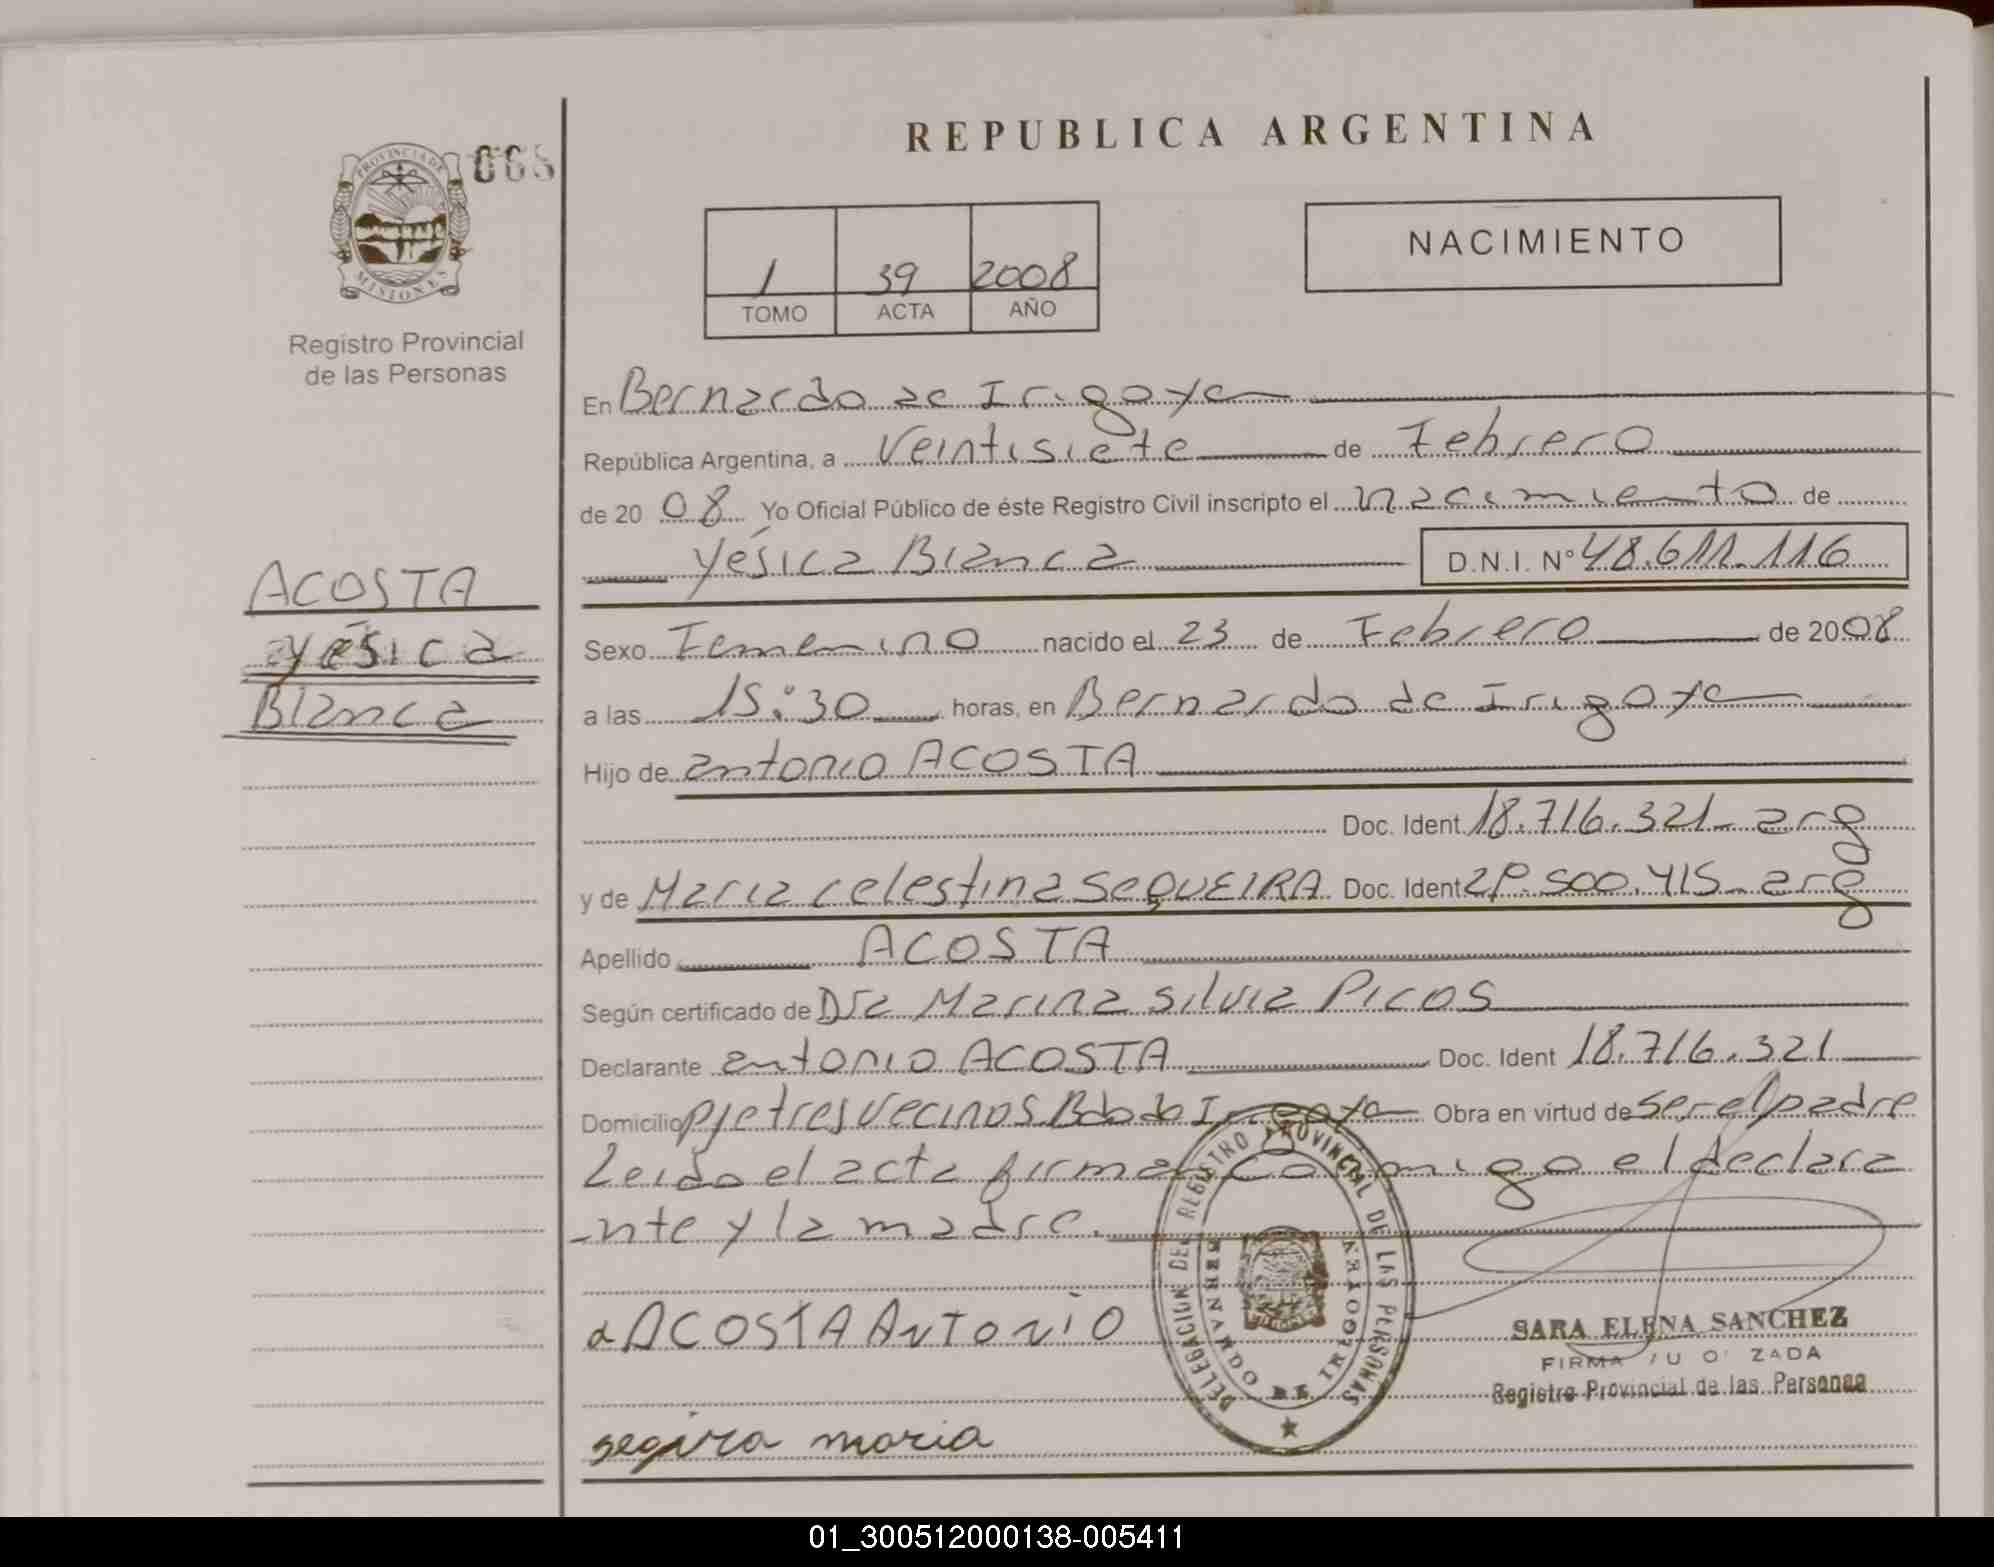 REPUBLICA ARGENTINA
PROVINCIA DE
MISIONES
Registro Provincial
de las Personas
1 39 2008
TOMO ACTA AÑO
NACIMIENTO
En Bernardo de Irigoye
República Argentina, a Veintisiete de Febrero
de 20 08 Yo Oficial Público de éste Registro Civil inscripto el nacimiento de
Yésica Blanca D.N.I. Nº 48.611.116
ACOSTA
Yésica
Blanca
Sexo Femenino nacido el 23 de Febrero de 2008
a las 15:30 horas, en Bernardo de Irigoye
Hijo de antonio ACOSTA
Doc. Ident 18.716.321 - arg
y de Maria celestina SeQUEIRA Doc. Ident .500.415 - arg
Apellido ACOSTA
Según certificado de Dra Marina silvia Picos
Declarante antonio ACOSTA Doc. Ident 18.716.321
Domicilio pje tres Vecinos Bdo de Irigoye Obra en virtud de ser el padre
Leido el acta firman conmigo el declara
-nte y la madre.
ACOSTA ANTONIO
segira maria
DELEGACION DEL REGISTRO PROVINCIAL DE LAS PERSONAS
BERNARDO DE IRIGOYEN
SARA ELENA SANCHEZ
FIRMA
Registro Provincial de las Personas
01_300512000138-005411